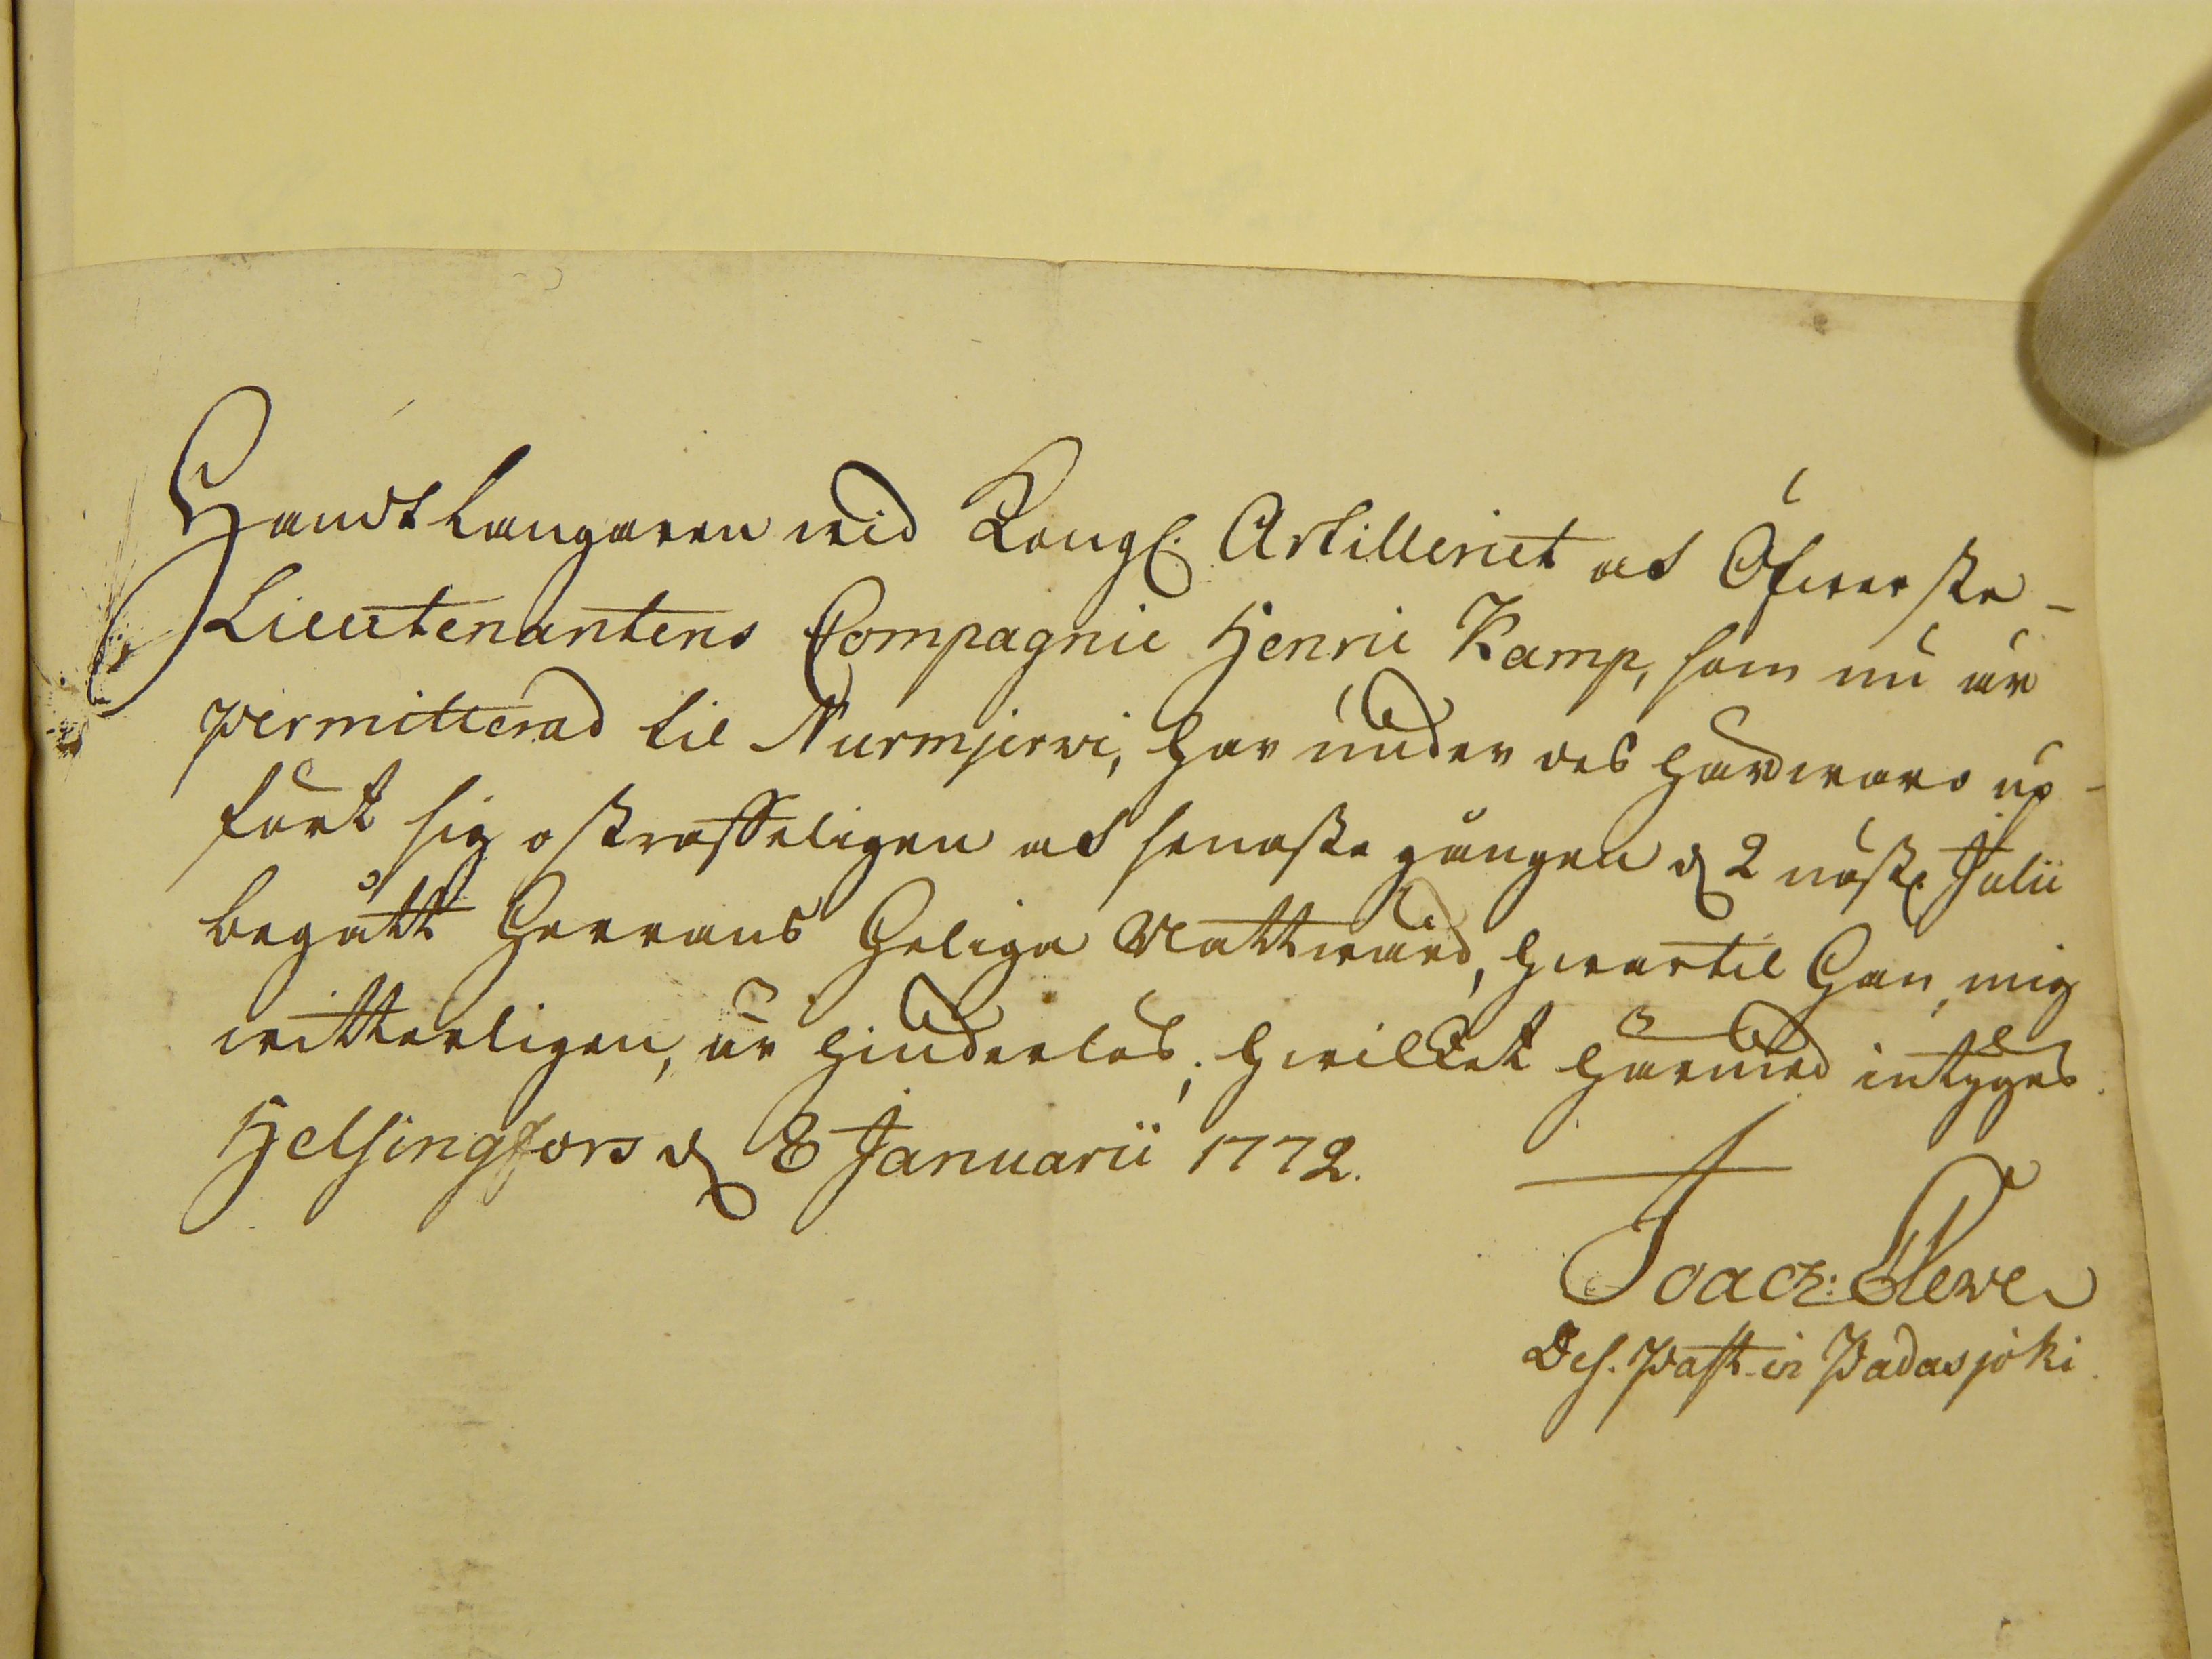 Handtlangaren wid Kongl. Artilleriet af Öfwerste-
Lieutenantens Compagnie Henric Kamp, som nu är
permitterad til Nurmjerwi, har under des härwaro up-
fördt sig ostraffeligen, af senaste gången d. 2 nästl. Julii
begått Herrans Heliga Nattward, hwartil Han, mig
witterligen, är hinderlös; hwilket härmed intyges.
Helsingfors d. 8 Januarii 1772.
Joach:
Des. Past. in Padasjoki